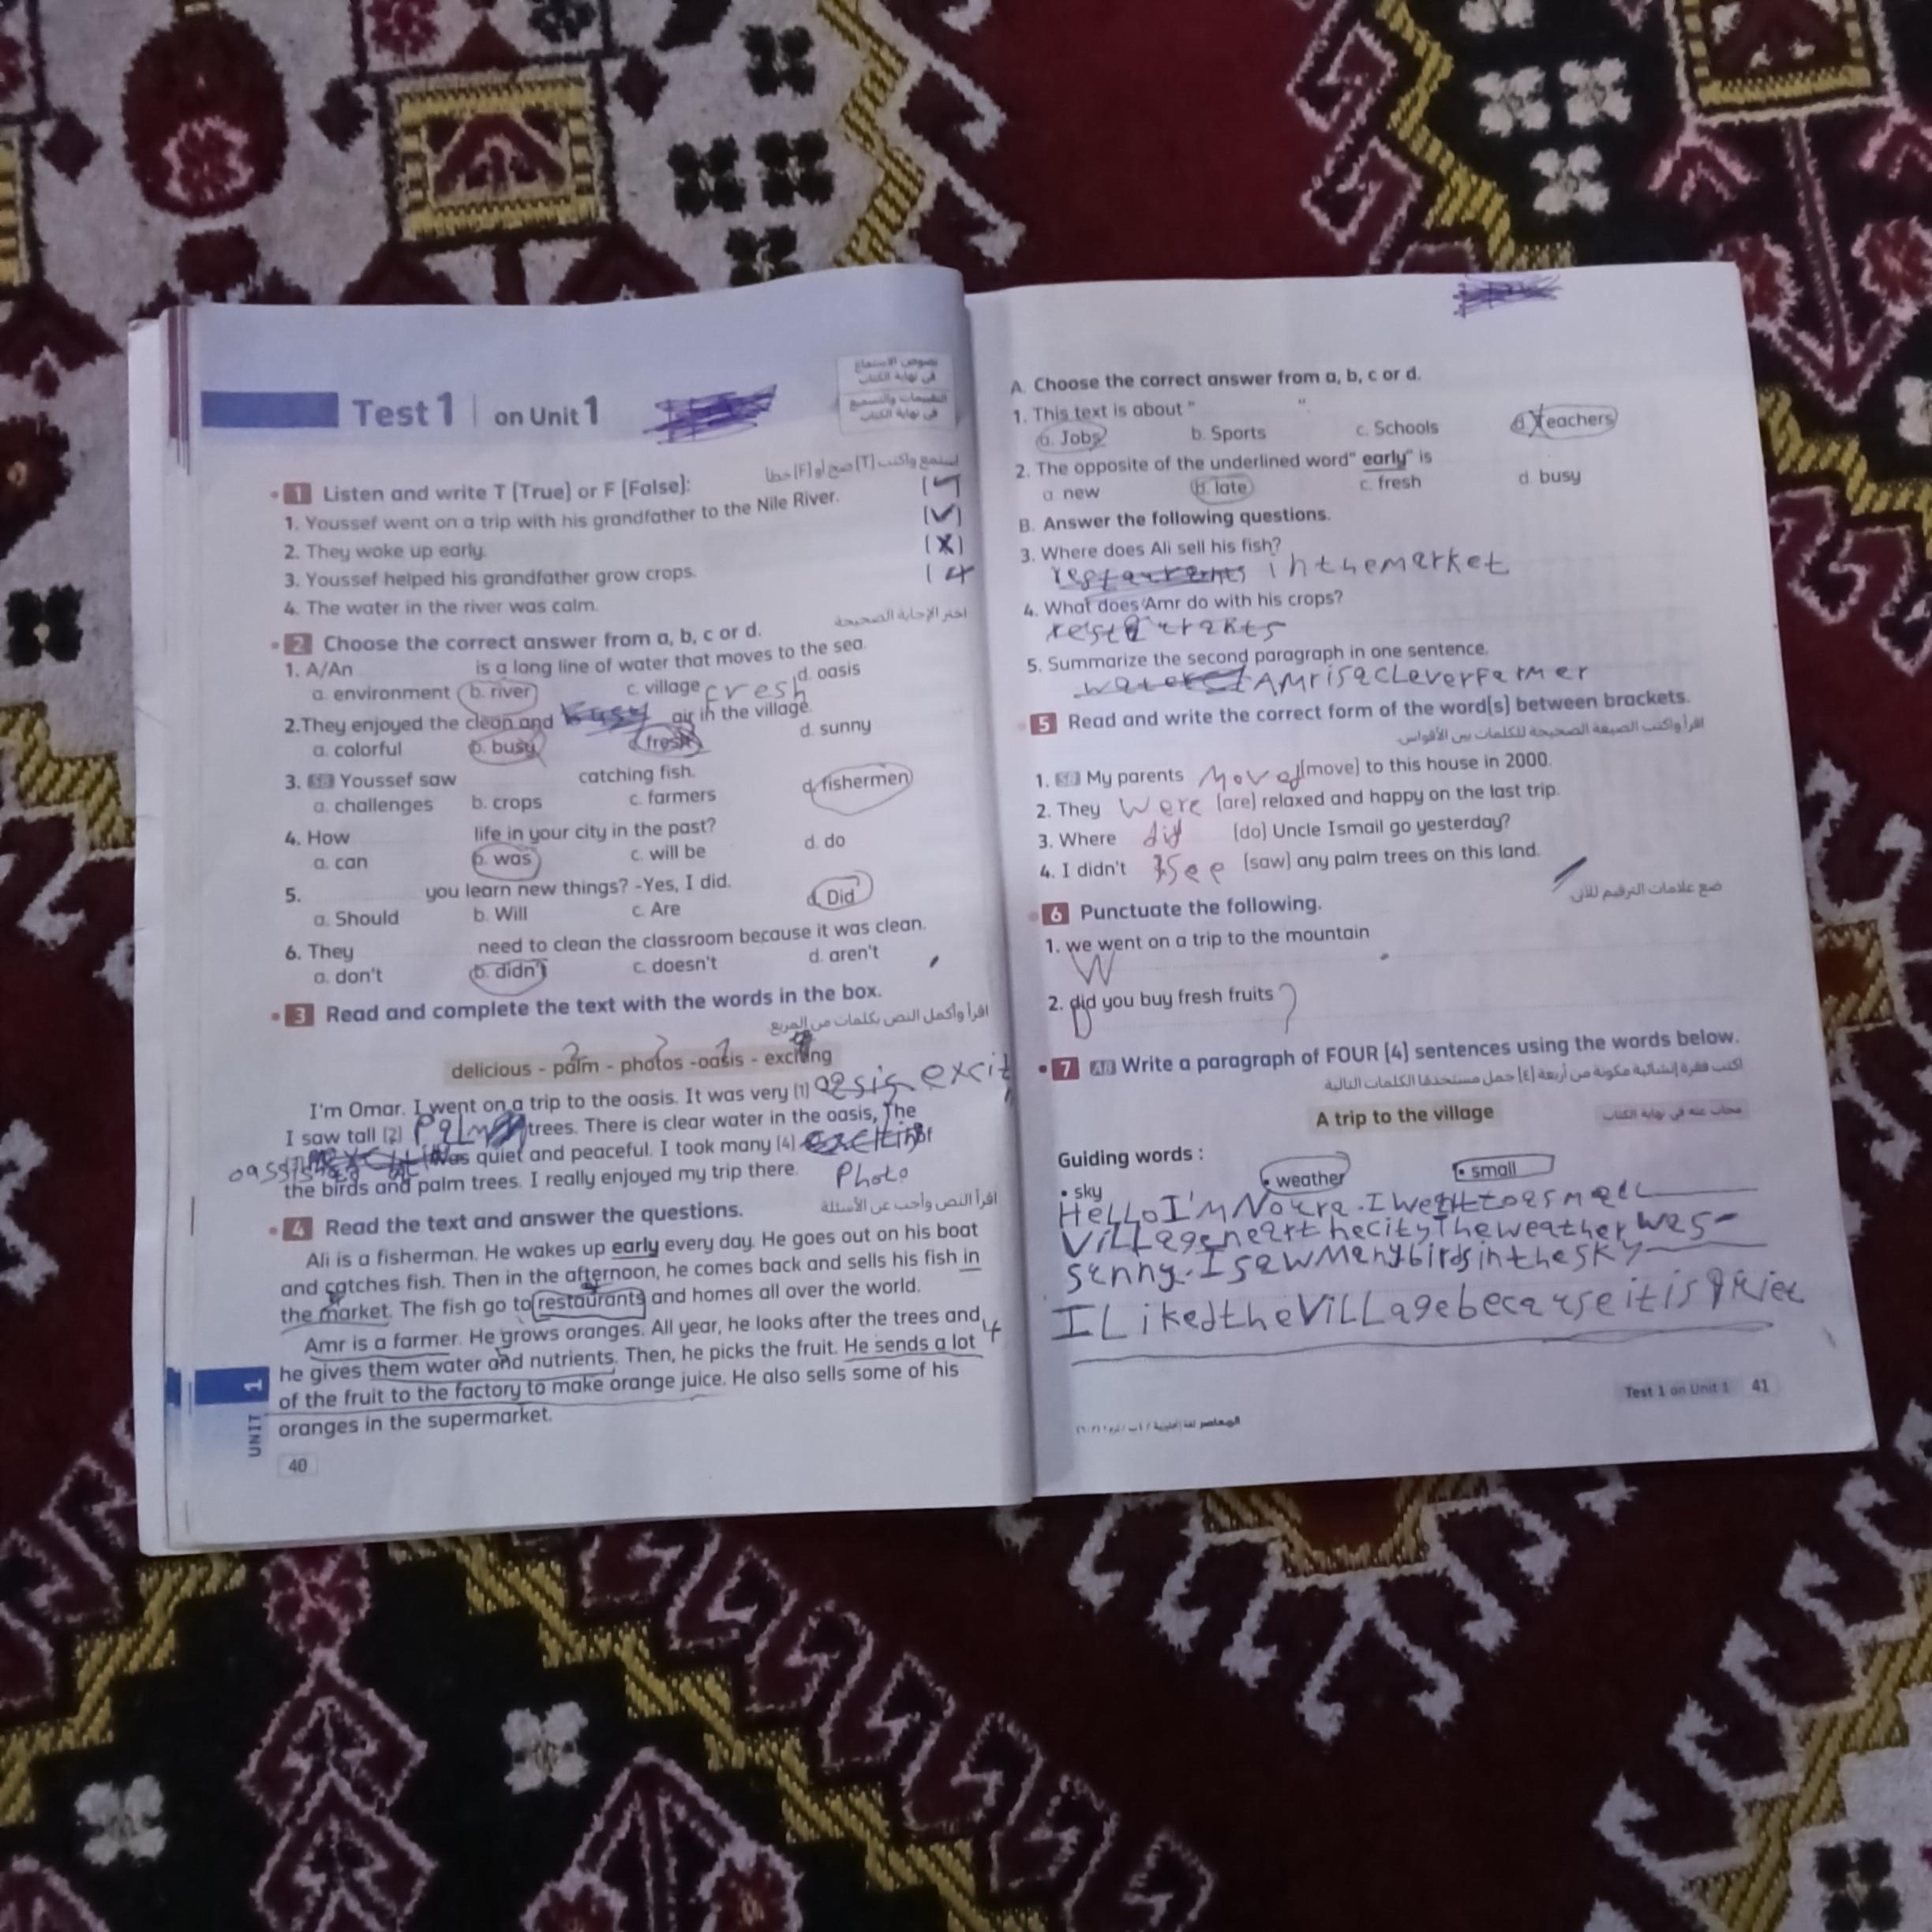 نصوص الاستماع
في نهاية الكتاب
التقييمات والتسميع
في نهاية الكتاب
Test 1 on Unit 1
استمع واكتب [T] صح أو [F] خطأ
1 Listen and write T [True] or F [False]:
1. Youssef went on a trip with his grandfather to the Nile River.
2. They woke up early.
3. Youssef helped his grandfather grow crops.
4. The water in the river was calm.
اختر الإجابة الصحيحة
2 Choose the correct answer from a, b, c or d.
1. A/An is a long line of water that moves to the sea.
a. environment b. river c. village d. oasis
cresh
2. They enjoyed the clean and air in the village.
a. colorful b. busy fresh d. sunny
3. Youssef saw catching fish.
a. challenges b. crops c. farmers d. fishermen
4. How life in your city in the past?
a. can b. was c. will be d. do
5. you learn new things? -Yes, I did.
a. Should b. Will c. Are d. Did
6. They need to clean the classroom because it was clean.
a. don't b. didn't c. doesn't d. aren't
3 Read and complete the text with the words in the box.
اقرأ وأكمل النص بكلمات من المربع
delicious - palm - photos - oasis - exciting
I'm Omar. I went on a trip to the oasis. It was very [1] excit
I saw tall [2] Palm trees. There is clear water in the oasis, The
was quiet and peaceful. I took many [4] of
the birds and palm trees. I really enjoyed my trip there. Photo
اقرأ النص وأجب عن الأسئلة
4 Read the text and answer the questions.
Ali is a fisherman. He wakes up early every day. He goes out on his boat
and catches fish. Then in the afternoon, he comes back and sells his fish in
the market. The fish go to restaurants and homes all over the world.
Amr is a farmer. He grows oranges. All year, he looks after the trees and
4
he gives them water and nutrients. Then, he picks the fruit. He sends a lot
of the fruit to the factory to make orange juice. He also sells some of his
oranges in the supermarket.
UNIT 1
40
A. Choose the correct answer from a, b, c or d.
1. This text is about " ".
a. Jobs b. Sports c. Schools d. teachers
2. The opposite of the underlined word" early" is
a. new b. late c. fresh d. busy
B. Answer the following questions.
3. Where does Ali sell his fish?
inthemarket
4. What does Amr do with his crops?
restaurants
5. Summarize the second paragraph in one sentence.
AMrisacLeverFarmer
5 Read and write the correct form of the word[s] between brackets.
اقرأ واكتب الصيغة الصحيحة للكلمات بين الأقواس
1. My parents Moved [move] to this house in 2000.
2. They were [are] relaxed and happy on the last trip.
3. Where did [do] Uncle Ismail go yesterday?
4. I didn't See [saw] any palm trees on this land.
ضع علامات الترقيم للآتي
6 Punctuate the following.
1. we went on a trip to the mountain .
W
2. did you buy fresh fruits ?
D
7 AB Write a paragraph of FOUR [4] sentences using the words below.
اكتب فقرة إنشائية مكونة من أربعة [٤] جمل مستخدمًا الكلمات التالية
A trip to the village
مجاب عنه في نهاية الكتاب
Guiding words :
• sky • weather • small
HeLLoI'MNoura.Iwenttoasmall
ViLLageneartthecityTheweatherwas
Sunny.IsawManybirdsinthesky
ILikedtheViLLagebecauseitisquiet
Test 1 on Unit 1 41